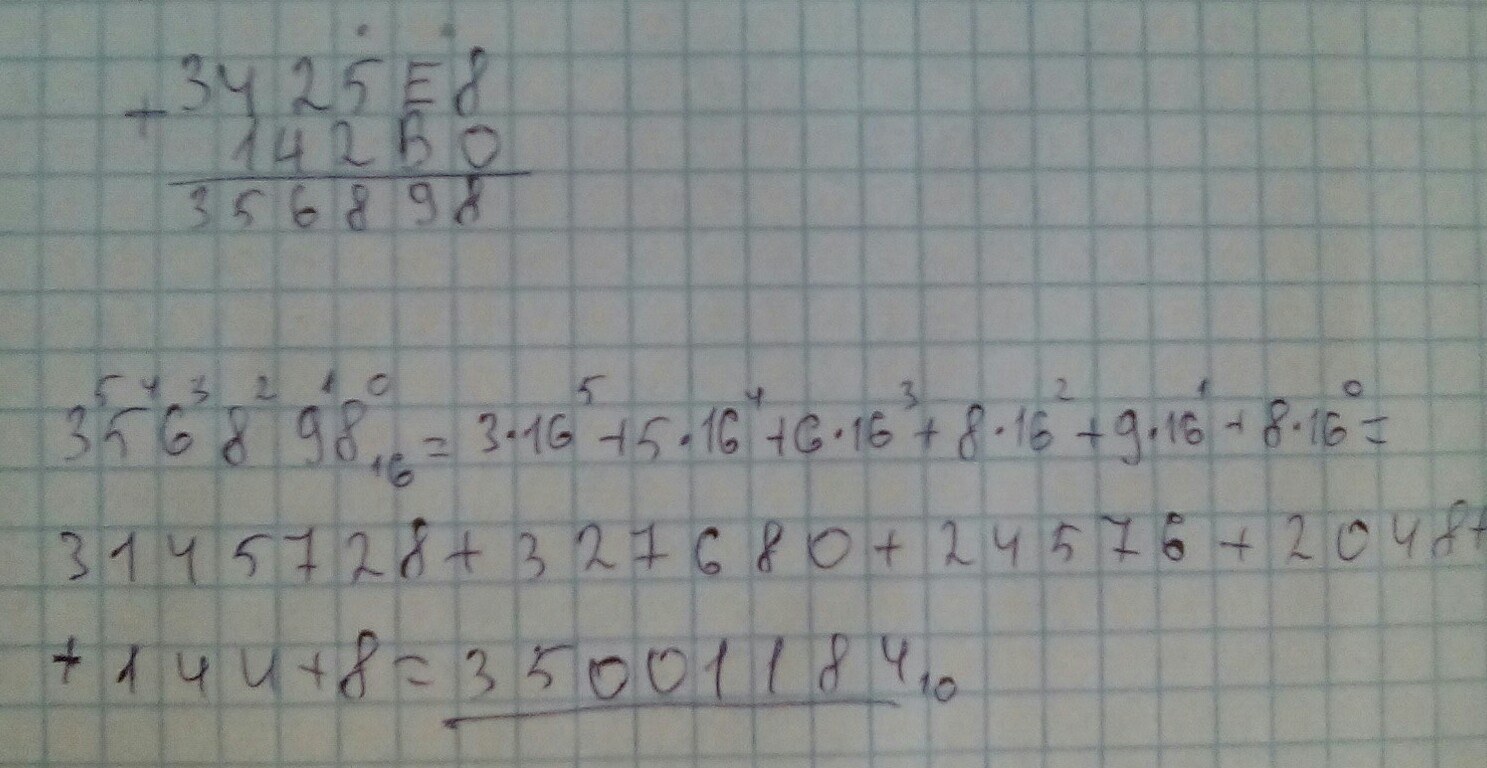 3425E8
+ 142B0
356898
3⁵5⁴6³8²9¹8⁰₁₆ = 3·16⁵+5·16⁴+6·16³+8·16²+9·16¹+8·16⁰=
3145728+327680+24576+2048+
+144+8=35001184₁₀